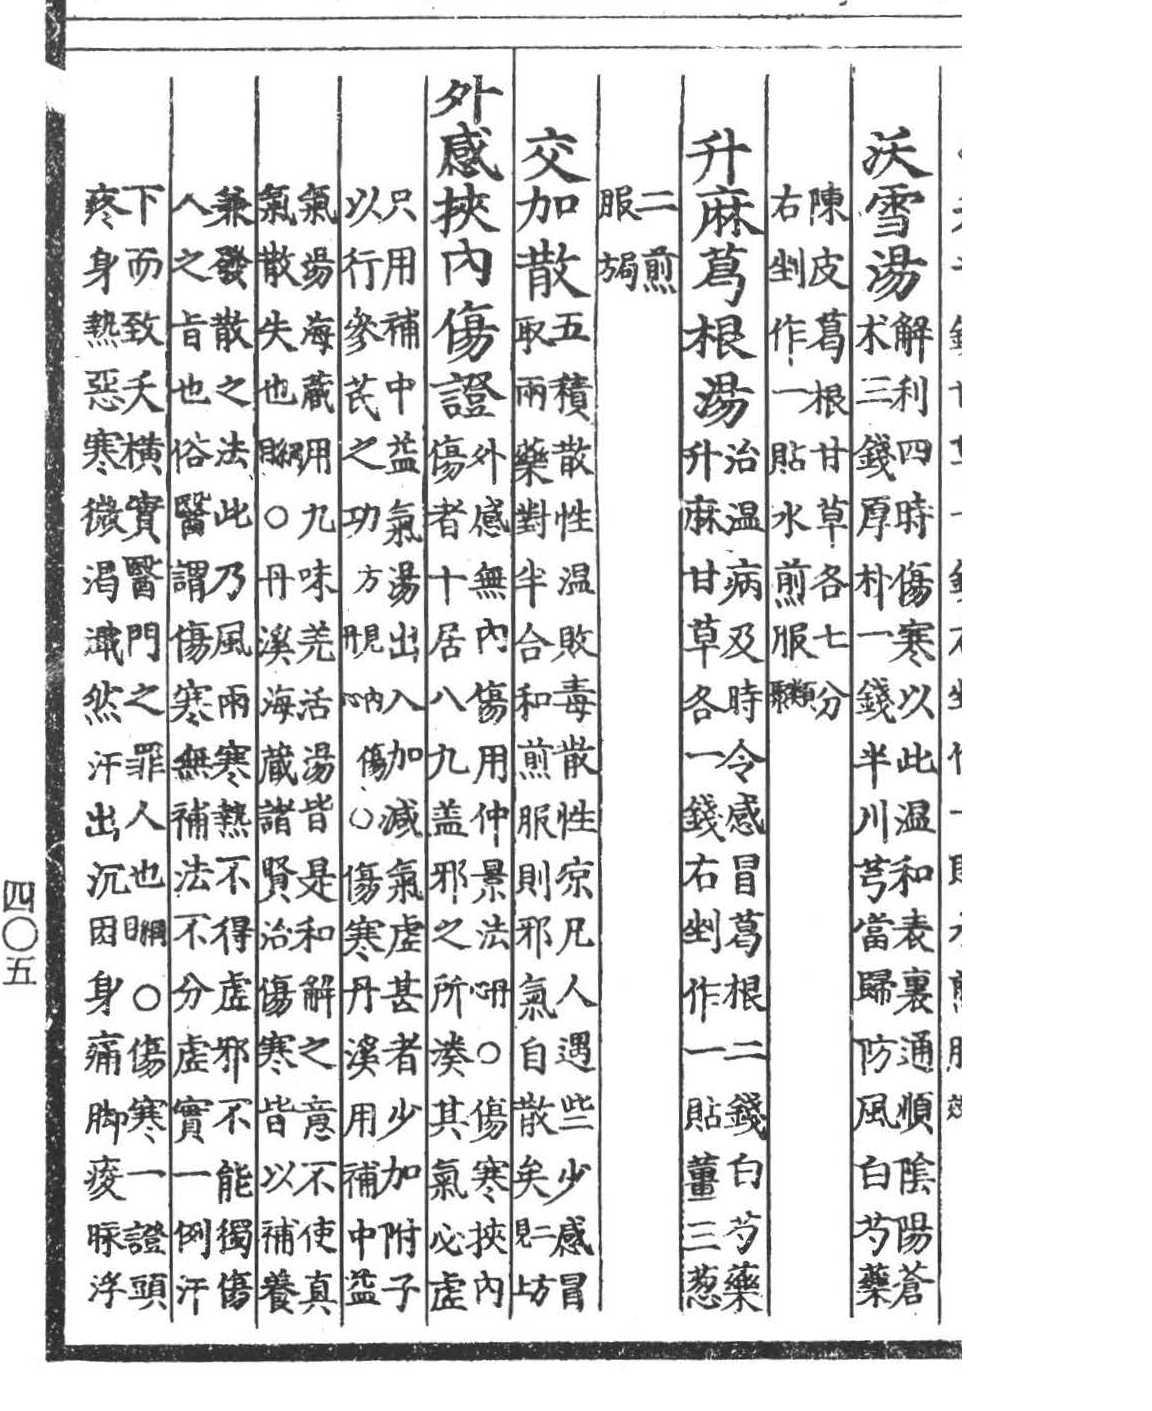 沃雪湯 解利四時傷寒以此温和表裏通順陰陽蒼
术三錢厚朴一錢半川芎當歸防風白芍藥
陳皮葛根甘草各七分
右剉作一貼水煎服類聚
升麻葛根湯 治温病及時令感冒葛根二錢白芍藥
升麻甘草各一錢右剉作一貼薑三葱
二煎
服局方
交加散 五積散性温敗毒散性凉凡人遇些少感冒
取兩藥對半合和煎服則邪氣自散矣二方見上
外感挾內傷證 外感無內傷用仲景法丹心○傷寒挾內
傷者十居八九盖邪之所湊其氣必虛
只用補中益氣湯出入加減氣虛甚者少加附子
以行參芪之功方見內傷丹心○傷寒丹溪用補中益
氣湯海藏用九味羌活湯皆是和解之意不使真
氣散失也綱目○丹溪海藏諸賢治傷寒皆以補養
兼發散之法此乃風雨寒熱不得虛邪不能獨傷
人之旨也俗醫謂傷寒無補法不分虛實一例汗
下而致夭橫實醫門之罪人也綱目○傷寒一證頭
疼身熱惡寒微渴濈然汗出沉困身痛脚痠脉浮
四〇五